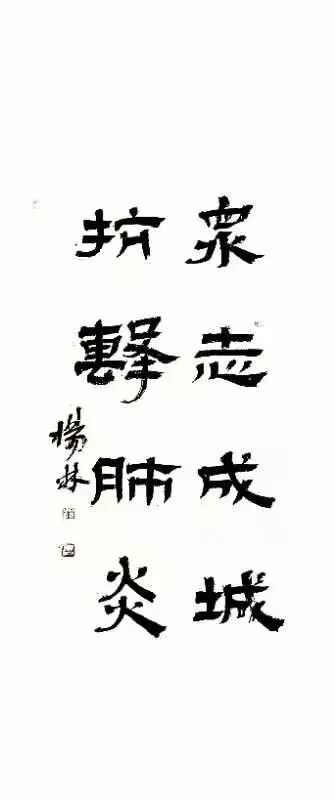 眾志成城
抗擊肺炎
楊林